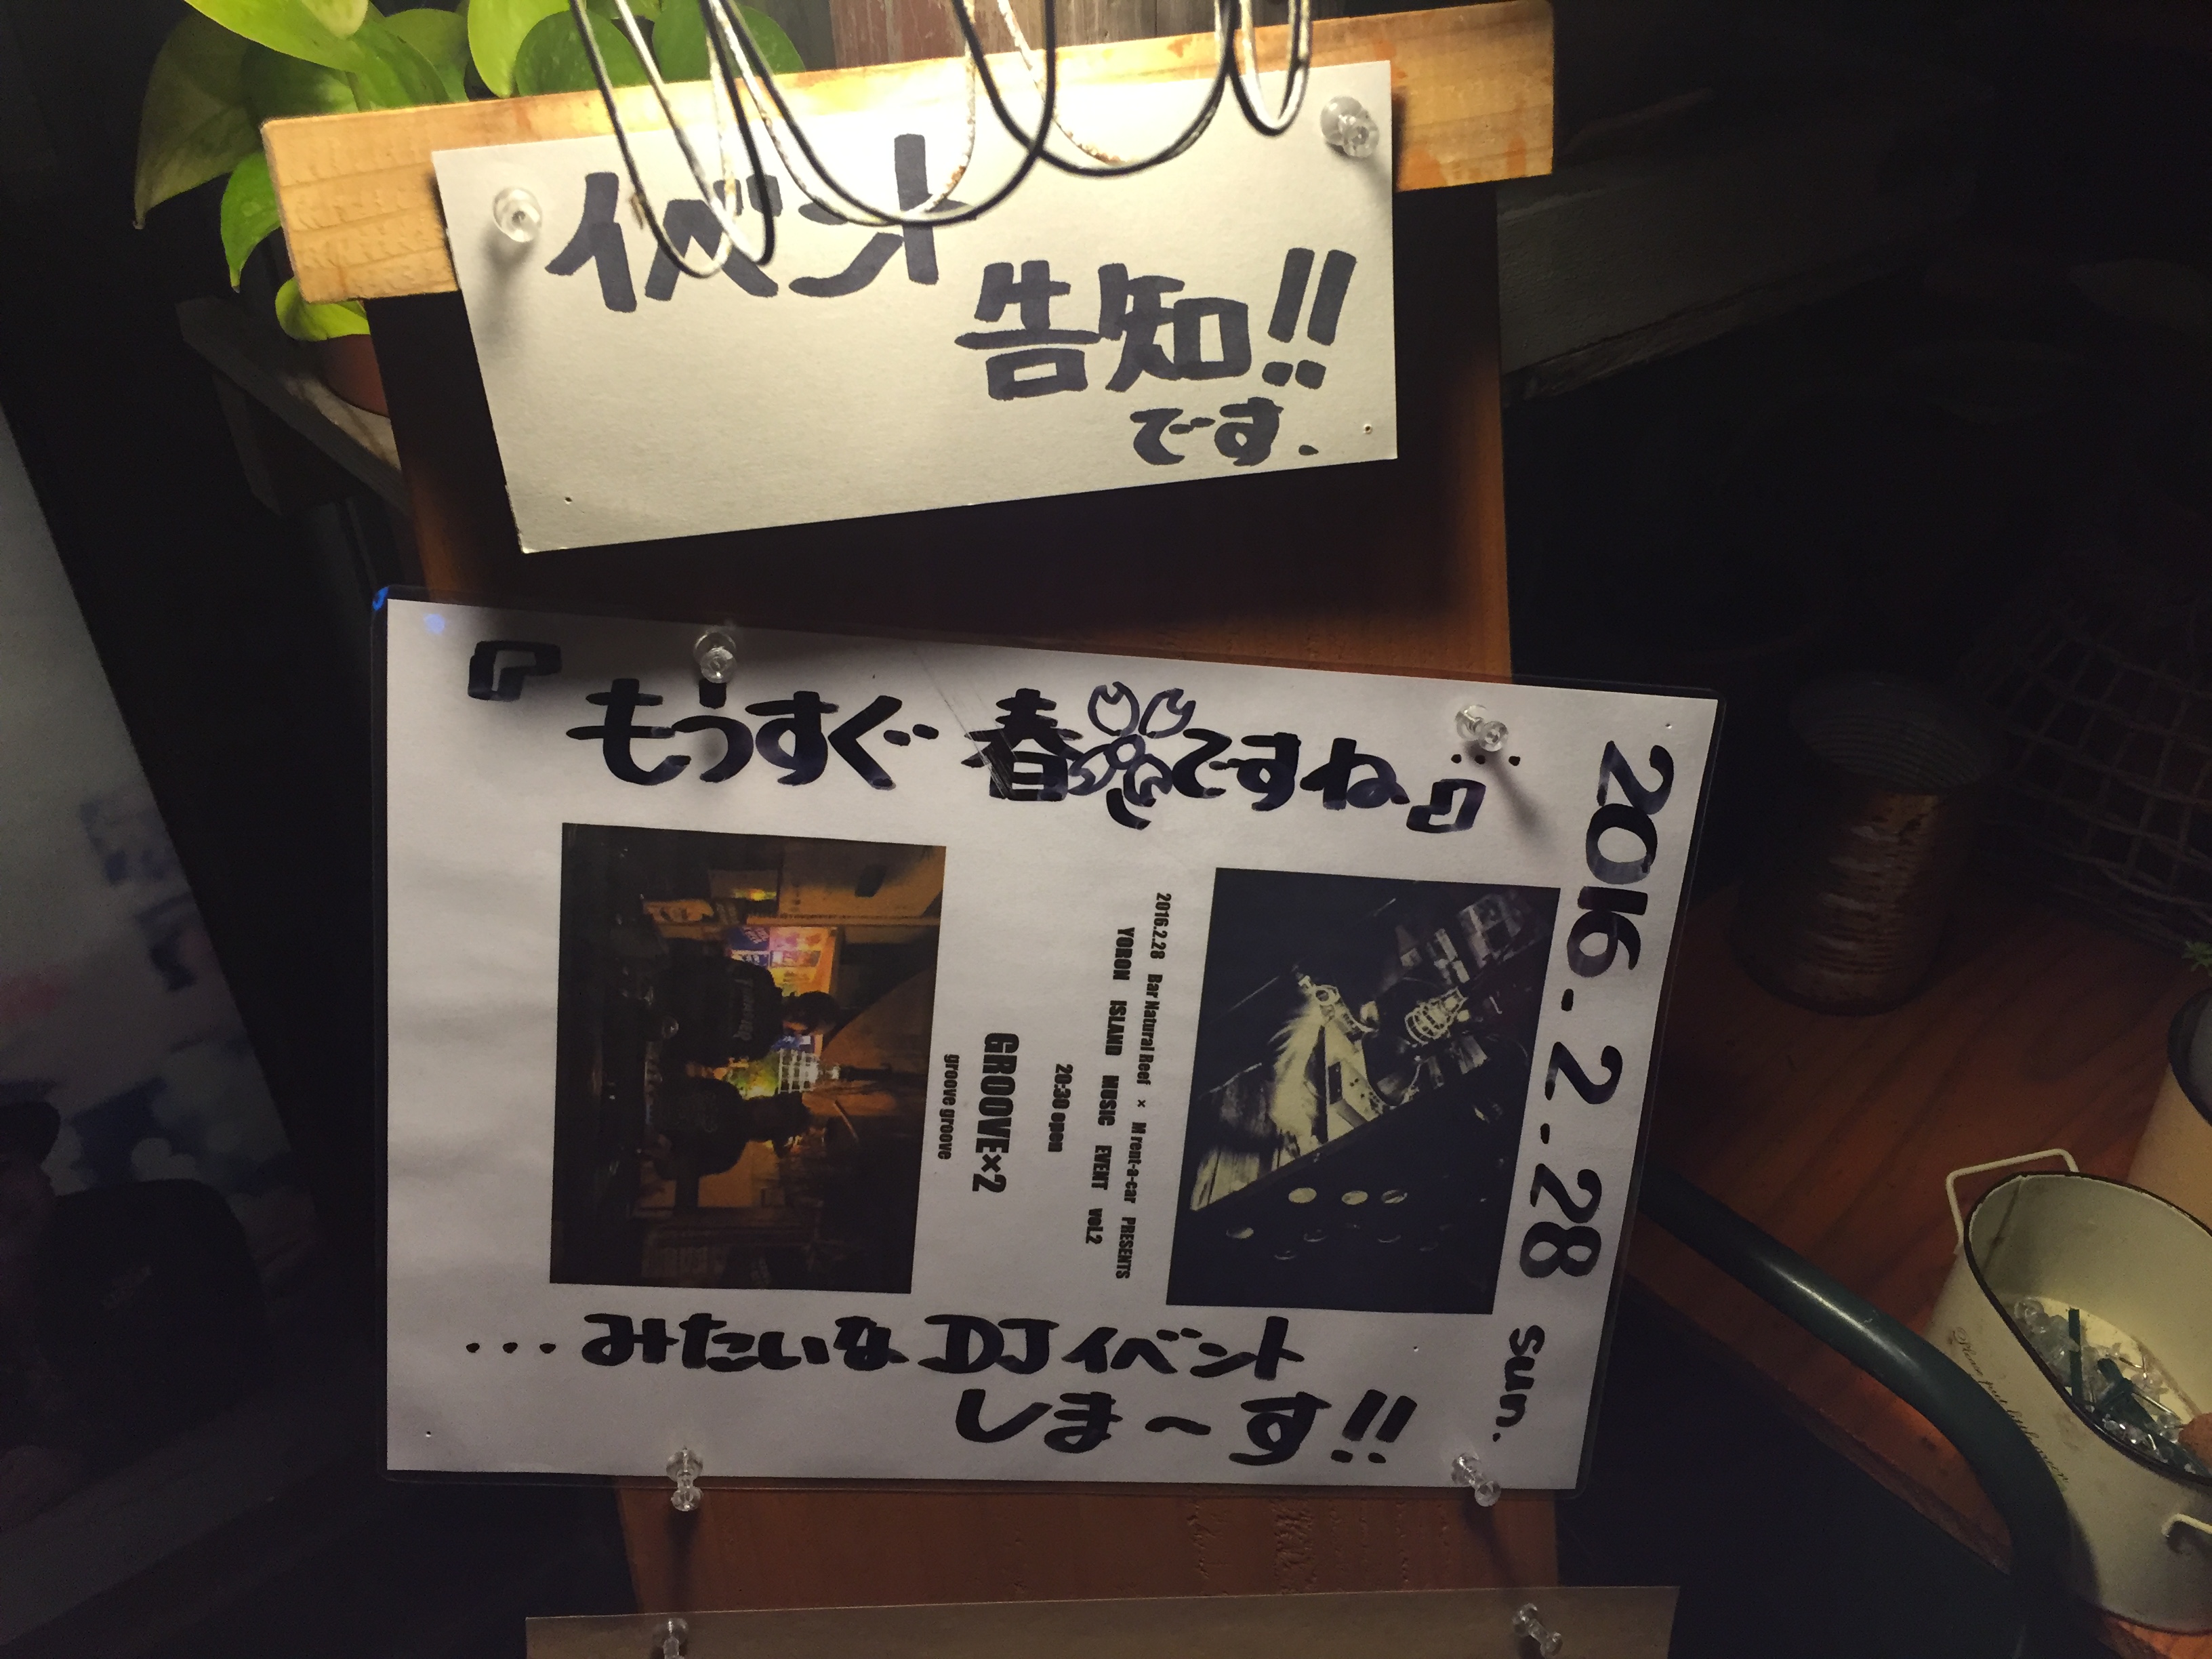 イベント
告知!!
です.
『もうすぐ春ですね…』
2016-2-28 sun.
2016.2.28 Bar Natural Reef × M rent-a-car PRESENTS
YORON ISLAND MUSIC EVENT vol.2
20:30 open
GROOVE×2
groove groove
...みたいな DJイベント
しま〜す!!